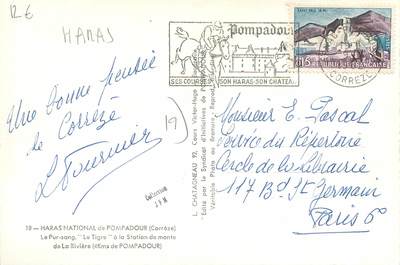 12 €
HARAS
Pompadour
SES COURSES SON HARAS SON CHATEAU
0,15 REPUBLIQUE FRANÇAISE
CORREZE
Une bonne pensée
de Corrèze
L Fournier
19
Collection
J H
L. CHATAGNEAU 92, Cours Victor-Hugo
"Edité par le Syndicat d'Initiatives de POMPADOUR"
Véritable Photo au Bromure
19 — HARAS NATIONAL de POMPADOUR (Corrèze)
Le Pur-sang, "Le Tigre" à la Station de monte
de La Rivière (4kms de POMPADOUR)
Monsieur E. Pascal
Service du Répertoire
Cercle de la Librairie
117 Bd St Germain
Paris 6e